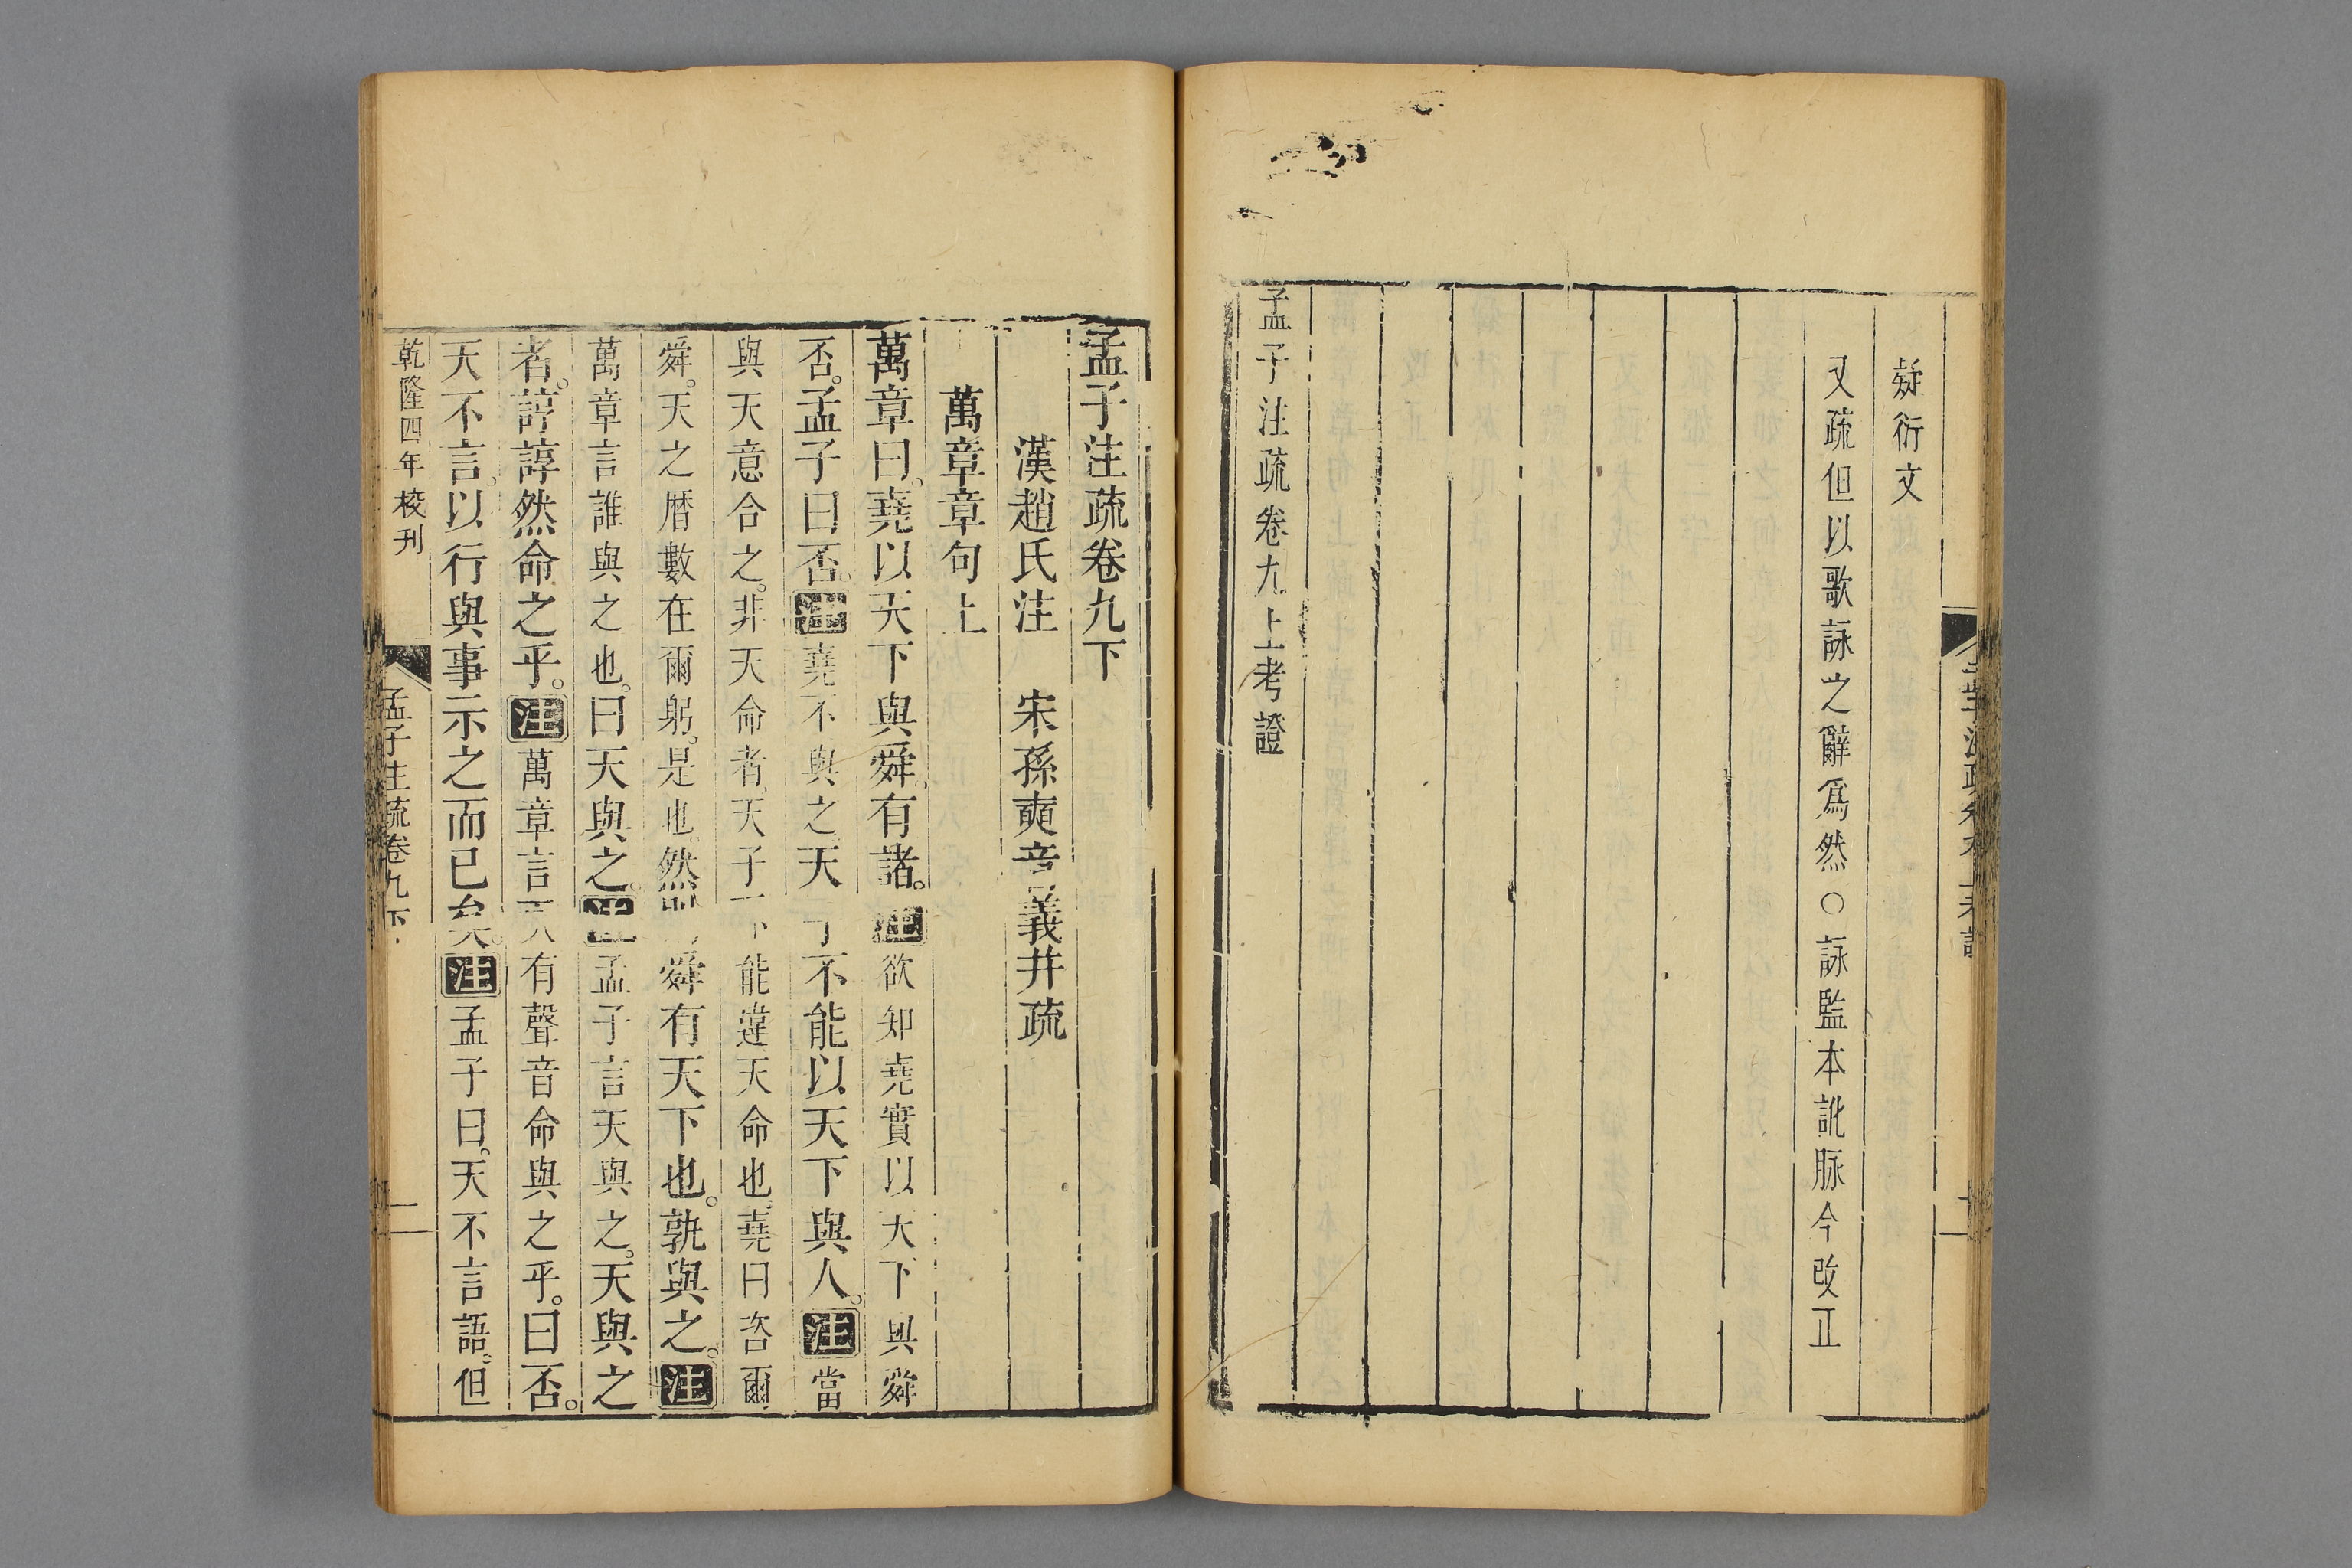 疑衍文
又疏但以歌詠之辭爲然○詠監本訛脉今改正
孟子注疏卷九上考證
孟子注疏卷九下
漢趙氏注　宋孫奭音義并疏
萬章章句上
萬章曰。堯以天下與舜。有諸。注欲知堯實以天下與舜
否。孟子曰否。注堯不與之天子不能以天下與人。注當
與天意合之。非天命者。天子不能違天命也。堯曰咨爾
舜。天之曆數在爾躬。是也。然則舜有天下也。孰與之。注
萬章言誰與之也。曰天與之。注孟子言天與之。天與之
者。諄諄然命之乎。注萬章言天有聲音命與之乎。曰否。
天不言。以行與事示之而已矣。注孟子曰。天不言語。但
乾隆四年校刊
孟子注疏卷九下